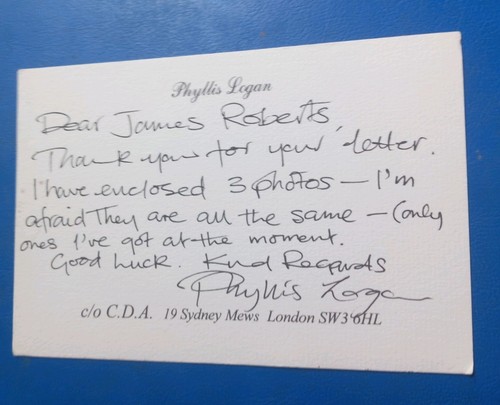 Phyllis Logan
Dear James Roberts,
Thank you for your letter.
I have enclosed 3 photos – I'm
afraid They are all the same – (only
ones I've got at the moment.
Good Luck. Kind Regards
Phyllis Logan
c/o C.D.A. 19 Sydney Mews London SW3 6HL